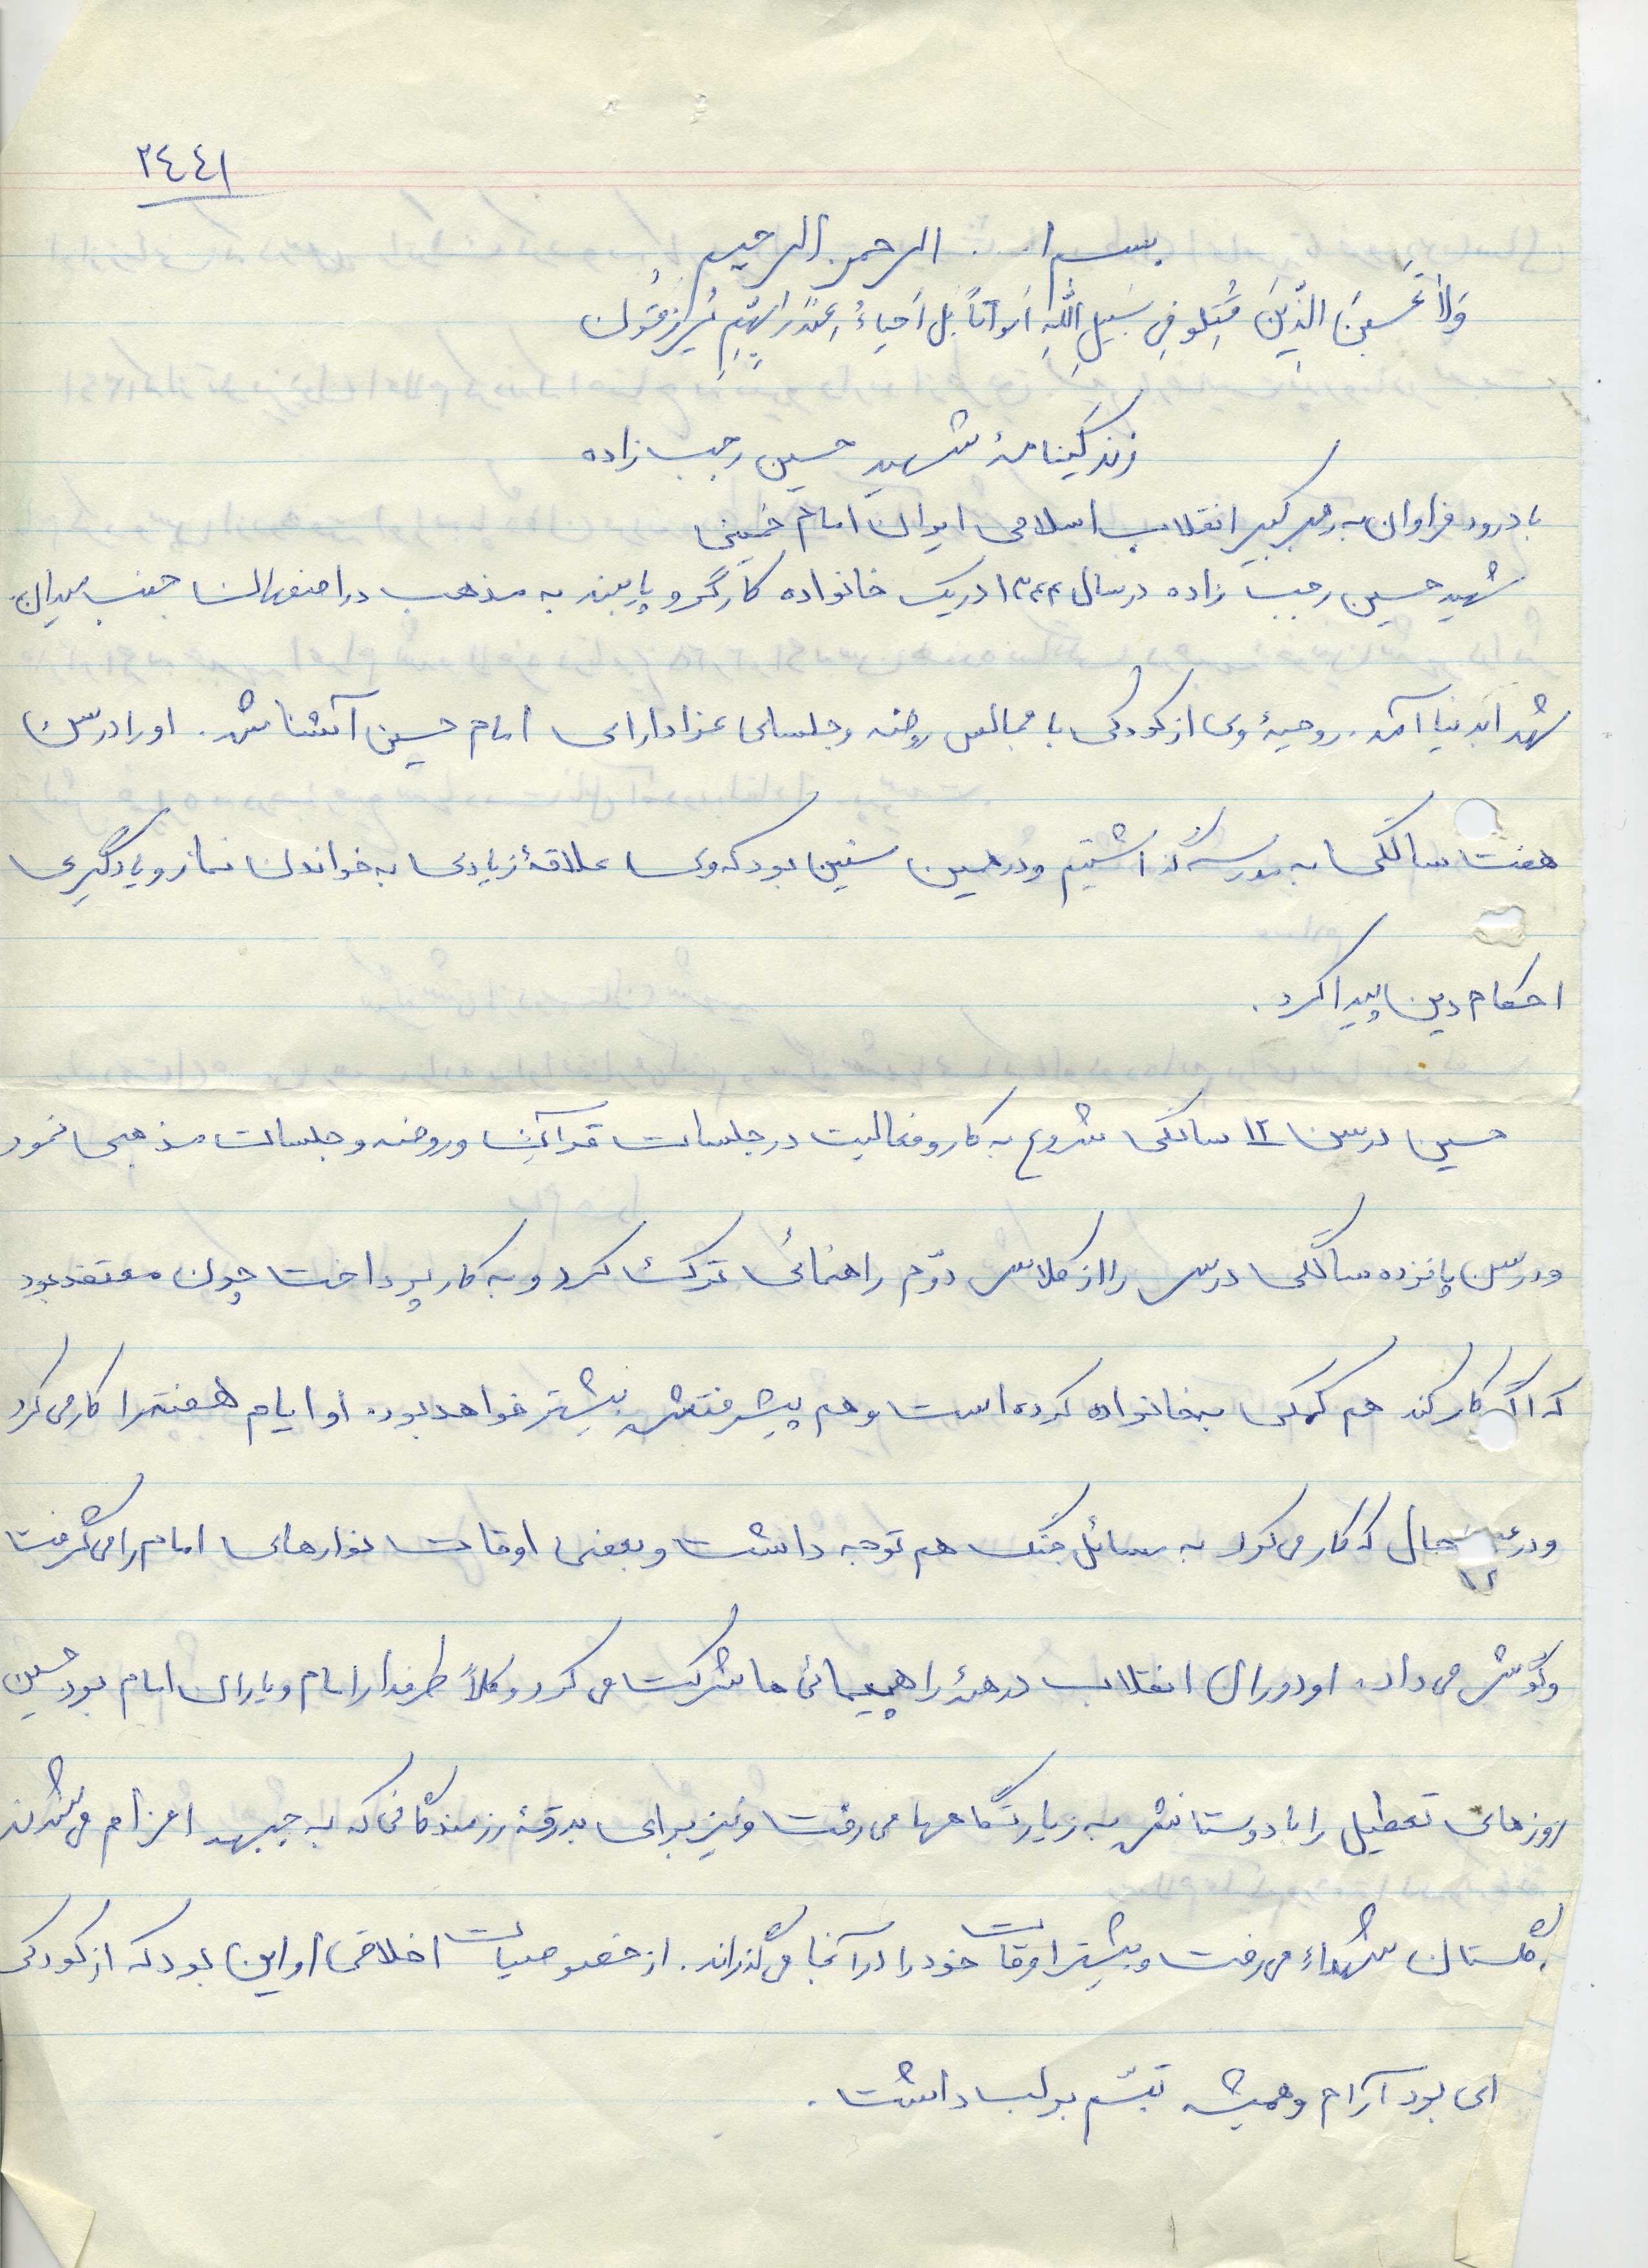 ٢٤٤١
بسم ا... الرحمن الرحیم
وَلا تَحسَبَنَ الَّذینَ قُتِلو فِی سَبیلِ اللّهِ اَمواتاً بَل اَحیاءُ عِندَ رَبِّهِم یُرزَقُون
زندگینامهٔ شهید حسین رجب زاده
با درود فراوان به رهبر کبیر انقلاب اسلامی ایران امام خمینی
شهید حسین رجب زاده در سال ۱۳۴۴ در یک خانواده کارگر و پایبند به مذهب در اصفهان جنب میدان
شهدا بدنیا آمد. روحیهٔ وی از کودکی با مجالس روضه و جلسات عزادارای امام حسین آشنا شد. او را در سن
هفت سالگی به مدرسه گذاشتیم و در همین سنین بود که وی علاقهٔ زیادی به خواندن نماز و یادگیری
احکام دین پیدا کرد.
حسین در سن ۱۲ سالگی شروع به کار و فعالیت در جلسات قرآن و روضه و جلسات مذهبی نمود
و در سن پانزده سالگی درس را از کلاس دوّم راهنمائی ترک کرد و به کار پرداخت چون معتقد بود
که اگر کار کند هم کمکی به خانواده کرده است و هم پیشرفتش بیشتر خواهد بود. او ایام هفته را کار می کرد
و در عین حال که کار می کرد به مسائل جنگ هم توجه داشت و بعضی اوقات نوارهای امام را می گرفت
و گوش می داد. او دوران انقلاب در همهٔ راهپیمائی ها شرکت می کرد و کلاً طرفدار امام و یاران امام بود حسین
روزهای تعطیل را با دوستانش به زیارتگاهها می رفت و نیز برای بدرقهٔ رزمندگانی که به جبهه اعزام می شدند
به گلستان شهداء می رفت و بیشتر اوقات خود را در آنجا می گذراند. از خصوصیات اخلاقی او این بود که از کودکی
ای بود آرام و همیشه تبسّم بر لب داشت.